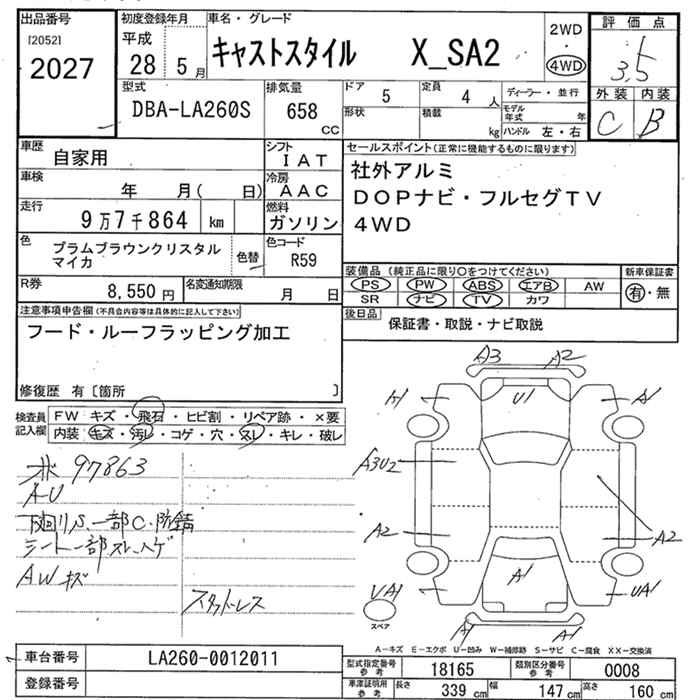 出品番号
[2052]
2027
初度登録年月
平成
28 5 月
車名・グレード
キャストスタイル X_SA2
2WD
・
4WD
評価点
3.5
外装 内装
C B
型式
DBA-LA260S
排気量
658
CC
ドア 5
形状
定員 4 人
積載 kg
ディーラー・並行
モデル年式 年
ハンドル 左・右
車歴 自家用
シフト
IAT
車検 年 月( 日)
冷房
AAC
走行 9万7千864 km
燃料
ガソリン
色 プラムブラウンクリスタル
マイカ
色替
色コード
R59
R券 8,550 円
名変通知期限 月 日
セールスポイント(正常に機能するものに限ります)
社外アルミ
DOPナビ・フルセグTV
4WD
装備品(純正品に限り〇をつけてください)
PS PW ABS エアB AW
SR ナビ TV カワ
新車保証書
有・無
後日品 保証書・取説・ナビ取説
注意事項申告欄(不具合内容等は具体的に記入して下さい)
フード・ルーフラッピング加工
修復歴 有〔箇所 〕
検査員
記入欄
FW キズ・飛石・ヒビ割・リペア跡・×要
内装・キズ・汚レ・コゲ・穴・スレ・キレ・破レ
97863
AU
下回リS.一部C.防錆
シート一部スレ、ハゲ
AWキズ
スタットレス
A3 A2
A1 U1 A1
A3U2
A2 A2
A1
UA1 UA1
スペア
A1 A1
A-キズ E-エクボ U-凹み W-補修跡 S-サビ C-腐食 XX-交換済
車台番号 LA260-0012011
登録番号
型式指定番号
参考
18165
類別区分番号
参考
0008
車庫証明用
参考
長さ 339 cm 幅 147 cm 高さ 160 cm